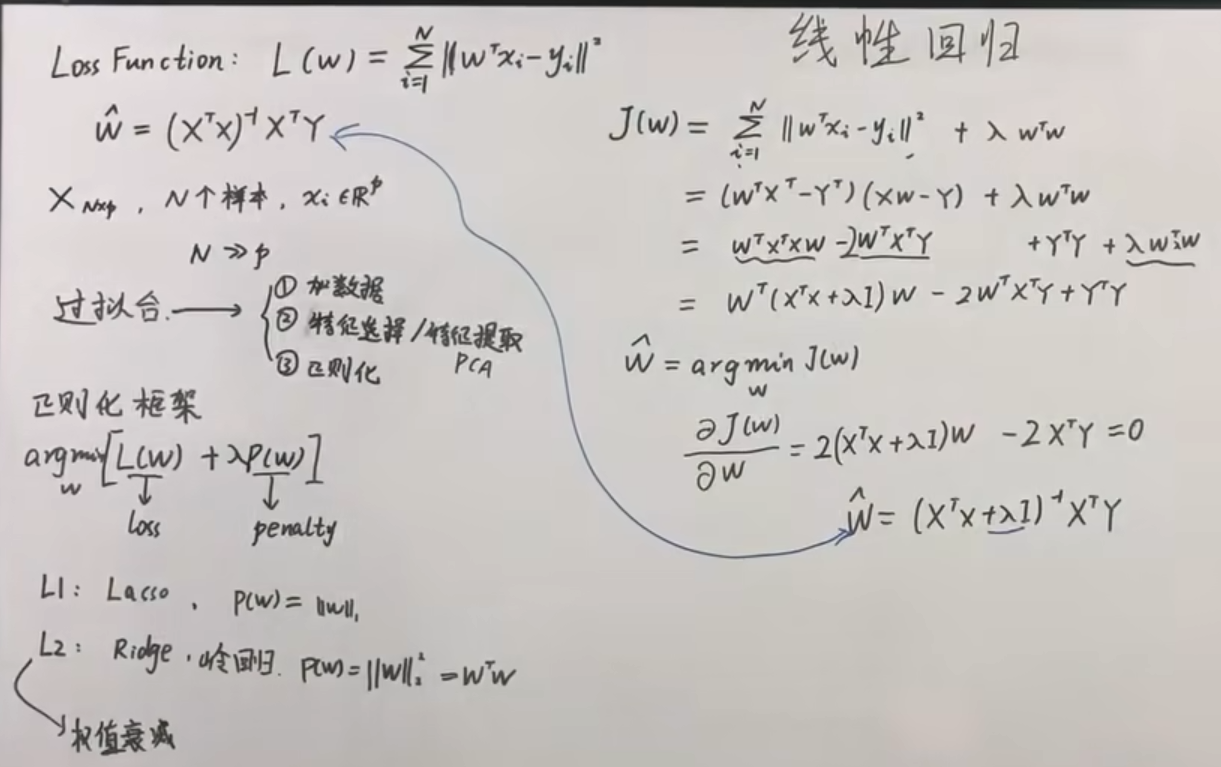 线性回归
Loss Function: L(w) = Σ_{i=1}^{N} ‖wᵀxᵢ - yᵢ‖²
ŵ = (XᵀX)⁻¹XᵀY
X_{N×p}, N个样本, xᵢ ∈ ℝᵖ
N ≫ p
过拟合 → { ① 加数据
② 特征选择/特征提取
PCA
③ 正则化
正则化框架
argmin_w [L(w) + λP(w)]
loss penalty
L1: Lasso, P(w) = ‖w‖₁
L2: Ridge, 岭回归. P(w) = ‖w‖₂² = wᵀw
权值衰减
J(w) = Σ_{i=1}^{N} ‖wᵀxᵢ - yᵢ‖² + λ wᵀw
= (wᵀXᵀ - Yᵀ)(Xw - Y) + λ wᵀw
= wᵀXᵀXw - 2wᵀXᵀY + YᵀY + λwᵀw
= wᵀ(XᵀX + λI)w - 2wᵀXᵀY + YᵀY
ŵ = argmin_w J(w)
∂J(w)/∂w = 2(XᵀX + λI)w - 2XᵀY = 0
ŵ = (XᵀX + λI)⁻¹XᵀY